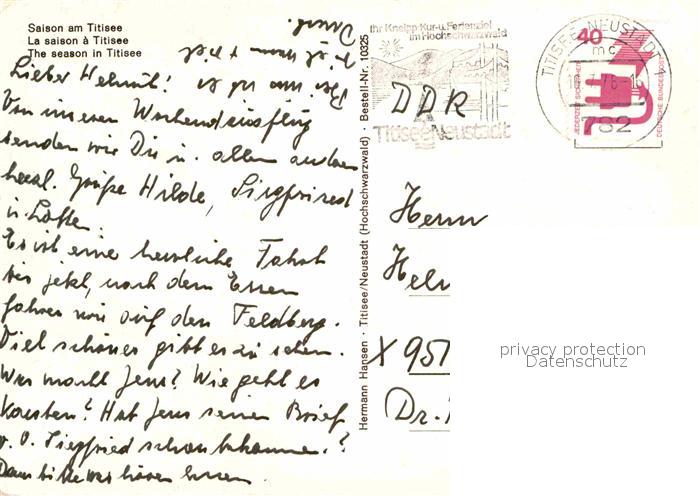 Saison am Titisee
La saison à Titisee
The season in Titisee
Lieber Helmut!
Von unseren Wochendausflug
senden wir Dir u. allen anderen
herzl. Grüße Hilde, Siegfried
u. Lotte.
Es ist eine herrliche Fahrt
bis jetzt, nach dem Essen
fahren wir auf den Feldberg.
Viel schönes gibt es zu sehen.
Was macht Jens? Wie geht es
Karsten? Hat Jens seinen Brief
v. O. Siegfried schon bekommen?
Dann bitte was hören lassen.
Hermann Hansen · Titisee/Neustadt (Hochschwarzwald) · Bestell-Nr. 10325
Ihr Kneipp-Kur-u. Ferienziel
im Hochschwarzwald
Titisee-Neustadt
TITISEE-NEUSTADT 1
mc
782
40
JEDERZEIT SICHERHEIT
DEUTSCHE BUNDESPOST
DDR
Herrn
Hel
X 951
Dr.
privacy protection
Datenschutz